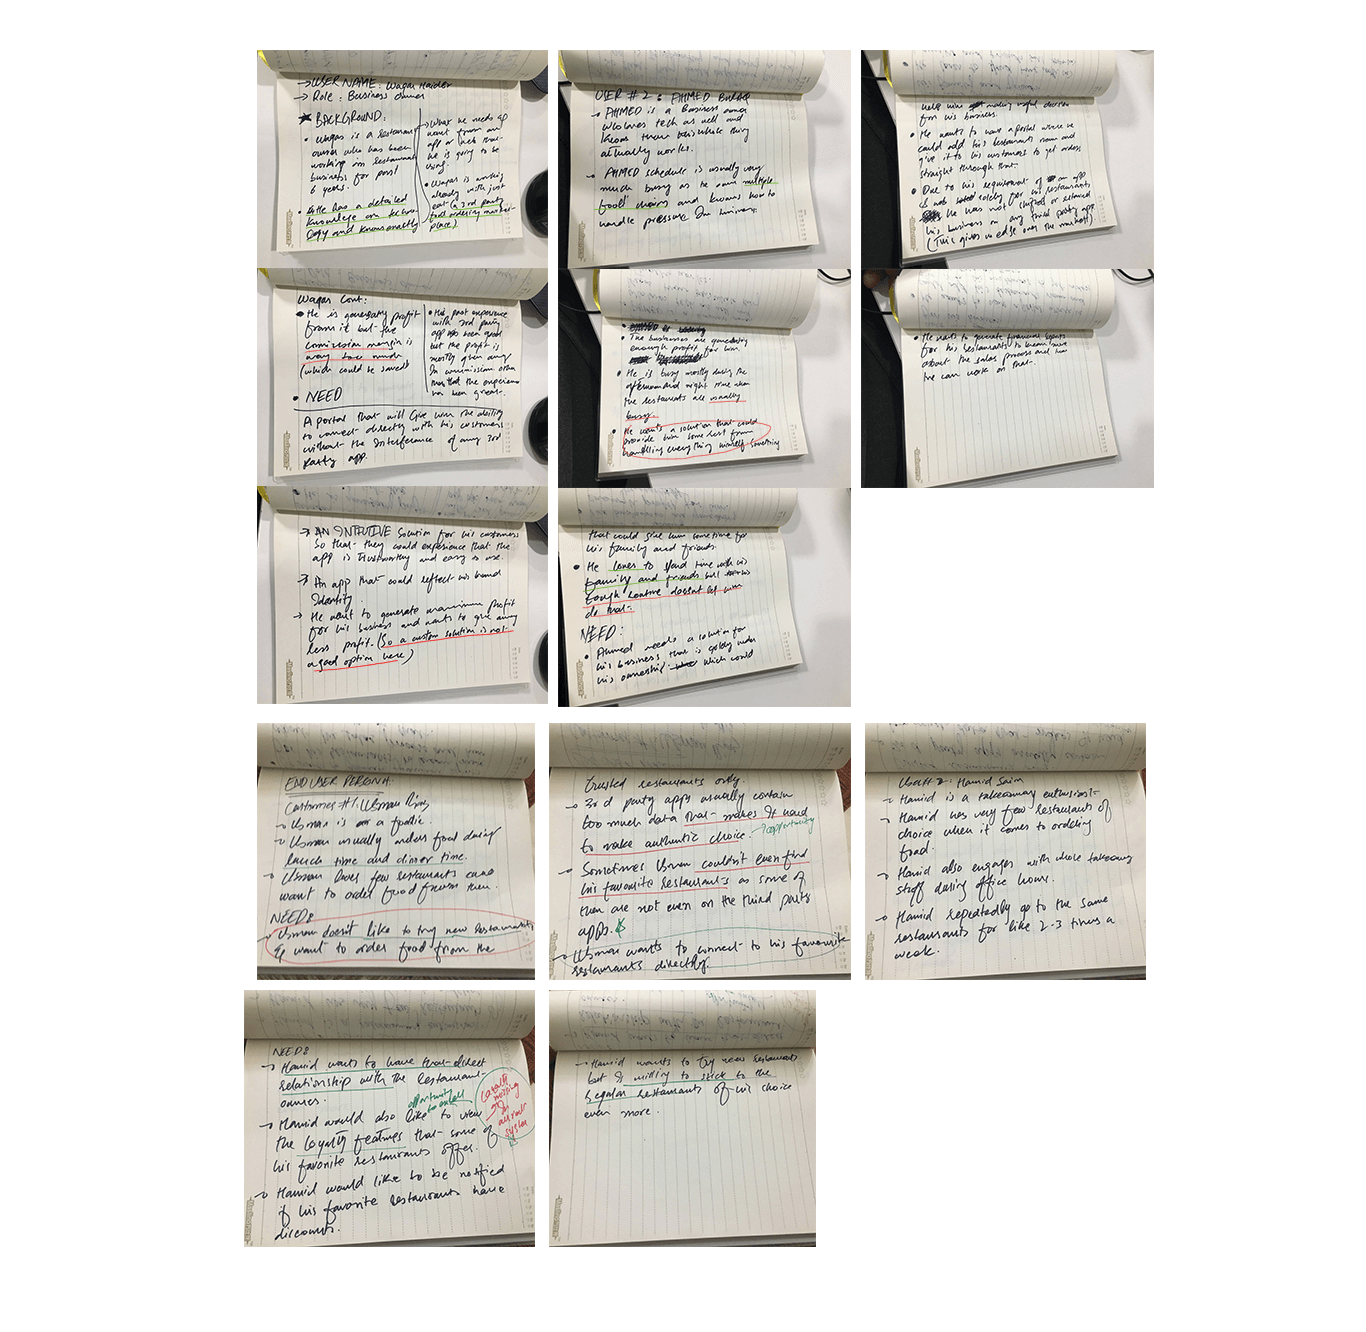 → USER NAME: Waqar Haider
→ Role: Business Owner
★ BACKGROUND:
• Waqas is a restaurant
owner who has been
working in restaurant
business for past
6 years.
• He has a detailed
knowledge on techno-
logy and knows exactly
→ what he needs
want from an
app or tech that
he is going to be
using.
• Waqas is working
already with just
eat (a 3rd party
food ordering market-
place)
Waqas Cont:
• He is generating profit
from it but the
commission margin is
way too much
(which could be saved)
• His past experience
with 3rd party
app has been good
but the profit is
mostly given away
in commission other
than that the experience
has been great.
• NEED
A portal that will give him the ability
to connect directly with his customers
without the interference of any 3rd
party app.
→ AN INTUITIVE solution for his customers
so that they could experience that the
app is trustworthy and easy to use.
→ An app that could reflect his brand
Identity.
→ He want to generate maximum profit
for his business and wants to give away
less profit. (So a custom solution is not
a good option here)
USER # 2: AHMED
→ AHMED is a Business owner
who loves tech as well and
knows how this whole thing
actually works.
→ AHMED schedule is usually very
much busy as he own multiple
food chains and knows how to
handle pressure
• The businesses are generating
enough profit for him.
• He is busy mostly during the
afternoon and night time when
the restaurants are usually
busy.
• He wants a solution that could
provide him some rest from
handling everything himself something
that could give him some time for
his family and friends.
• He loves to spend time with his
family and friends but
tough routine doesn't let him
do that.
NEED:
• Ahmed needs a solution for
his business that is solely under
his ownership which could
help him making useful decision
for his business.
• He wants to have a portal where he
could add his restaurants menu and
give it to his customers to get orders
straight through that.
• Due to his requirement of an app
solely for his restaurants
he has not
his business on any third party app
(This gives us edge over the market)
• He wants to generate financial reports
for his restaurants to know more
about the sales process and how
he can work on that.
END USER PERSONA:
Customer #1: Usman
→ Usman is a foodie.
→ Usman usually orders food during
lunch time and dinner time.
→ Usman loves few restaurants and
want to order food from them.
NEEDS
→ Usman doesn't like to try new restaurants
& want to order food from the
trusted restaurants only.
→ 3rd party apps usually contain
too much data that makes it hard
to make authentic choice. → opportunity
→ Sometimes Usman couldn't even find
his favourite restaurants as some of
them are not even on the third party
apps.
→ Usman wants to connect to his favourite
restaurants directly.
User # 2: Hamid Saim
→ Hamid is a takeaway enthusiast
→ Hamid has very few restaurants of
choice when it comes to ordering
food.
→ Hamid also engages with whole takeaway
staff during office hours.
→ Hamid repeatedly go to the same
restaurants for like 2-3 times a
week.
NEEDS
→ Hamid wants to have that direct
relationship with the restaurant
owners.
opportunity
to excell
→ Hamid would also like to view
the loyalty features that some of
his favorite restaurants offer.
Loyalty
missing
in
current
system
→ Hamid would like to be notified
if his favorite restaurants have
discounts.
→ Hamid wants to try new restaurants
but is willing to stick to the
regular restaurants of his choice
even more.